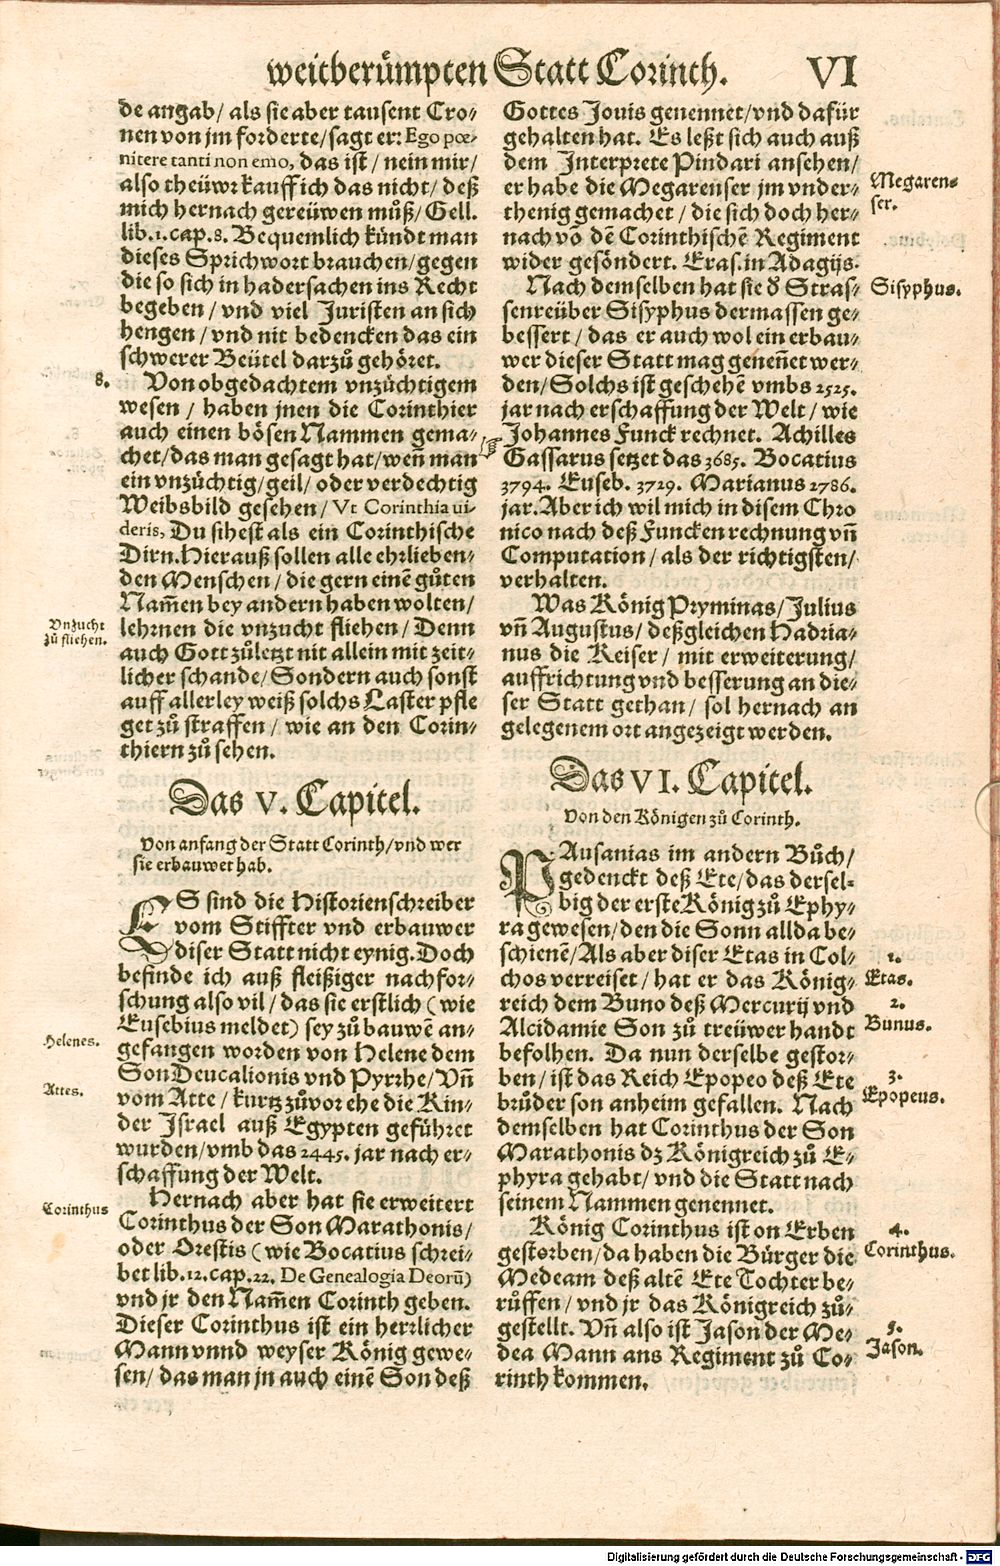 weitberůmpten Statt Corinth. VI
de angab/ als sie aber tausent Cro⸗
nen von jm forderte/ sagt er: Ego pœ-
nitere tanti non emo, das ist / nein mir/
also theüwr kauff ich das nicht/ deß
mich hernach gereüwen můß/ Gell.
lib. 1. cap. 8. Bequemlich kündt man
dieses Sprichwort brauchen/ gegen
die so sich in hadersachen ins Recht
begeben / vnd viel Juristen an sich
hengen / vnd nit bedencken das ein
schwerer Beütel darzů gehöret.
8.
Von obgedachtem vnzüchtigem
wesen / haben jnen die Corinthier
auch einen bösen Nammen gema⸗
chet/ das man gesagt hat/ weñ man
ein vnzüchtig/ geil/ oder verdechtig
Weibsbild gesehen/ Vt Corinthia ui-
deris, Du sihest als ein Corinthische
Dirn. Hierauß sollen alle ehrlieben⸗
den Menschen / die gern einē gůten
Nam̃en bey andern haben wolten/
Vnzucht
zů fliehen.
lehrnen die vnzucht fliehen / Denn
auch Gott zůletzt nit allein mit zeit⸗
licher schande/ Sondern auch sonst
auff allerley weiß solchs Laster pfle
get zů straffen / wie an den Corin⸗
thiern zů sehen.
Das V. Capitel.
Von anfang der Statt Corinth/ vnd wer
sie erbauwet hab.
ES sind die Historienschreiber
vom Stiffter vnd erbauwer
diser Statt nicht eynig. Doch
befinde ich auß fleißiger nachfor⸗
schung also vil / das sie erstlich (wie
Eusebius meldet) sey zů bauwē an⸗
Helenes.
gefangen worden von Helene dem
Son Deucalionis vnd Pyrrhe/ Vñ
Attes.
vom Atte / kurtz zůvor ehe die Kin⸗
der Israel auß Egypten geführet
wurden/ vmb das 2445. jar nach er⸗
schaffung der Welt.
Hernach aber hat sie erweitert
Corinthus
Corinthus der Son Marathonis/
oder Orestis (wie Bocatius schrei⸗
bet lib. 12. cap. 22. De Genealogia Deorū)
vnd jr den Nam̃en Corinth geben.
Dieser Corinthus ist ein herrlicher
Mann vnnd weyser König gewe⸗
sen/ das man jn auch einē Son deß
Gottes Jouis genennet/ vnd dafür
gehalten hat. Es leßt sich auch auß
dem Interprete Pindari ansehen/
Megaren⸗
ser.
er habe die Megarenser jm vnder⸗
thenig gemachet / die sich doch her⸗
nach võ dē Corinthischē Regiment
wider gesöndert. Eras. in Adagijs.
Sisyphus.
Nach demselben hat sie ď Stras⸗
senreüber Sisyphus dermassen ge⸗
bessert / das er auch wol ein erbau⸗
wer dieser Statt mag geneñet wer⸗
den/ Solchs ist geschehē vmbs 2525.
jar nach erschaffung der Welt / wie
☞ Johannes Funck rechnet. Achilles
Gassarus setzet das 3685. Bocatius
3794. Euseb. 3729. Marianus 2786.
jar. Aber ich wil mich in disem Chro
nico nach deß Funcken rechnung vñ
Computation / als der richtigsten/
verhalten.
Was König Pryminas/ Julius
vñ Augustus/ deßgleichen Hadria⸗
nus die Keiser / mit erweiterung/
auffrichtung vnd besserung an die⸗
ser Statt gethan / sol hernach an
gelegenem ort angezeigt werden.
Das VI. Capitel.
Von den Königen zů Corinth.
PAusanias im andern Bůch/
gedenckt deß Ete/ das dersel⸗
big der erste König zů Ephy⸗
ra gewesen/ den die Sonn allda be⸗
schienē/ Als aber diser Etas in Col⸗
1.
Etas.
chos verreiset / hat er das König⸗
reich dem Buno deß Mercurij vnd
2.
Bunus.
Alcidamie Son zů treüwer handt
befolhen. Da nun derselbe gestor⸗
3.
Epopeus.
ben / ist das Reich Epopeo deß Ete
brůder son anheim gefallen. Nach
demselben hat Corinthus der Son
Marathonis dz Königreich zů E⸗
phyra gehabt / vnd die Statt nach
seinem Nammen genennet.
4.
Corinthus.
König Corinthus ist on Erben
gestorben/ da haben die Bürger die
Medeam deß altē Ete Tochter be⸗
růffen / vnd jr das Königreich zů⸗
5.
Jason.
gestellt. Vñ also ist Jason der Me⸗
dea Mann ans Regiment zů Co⸗
rinth kommen.
Digitalisierung gefördert durch die Deutsche Forschungsgemeinschaft - DFG